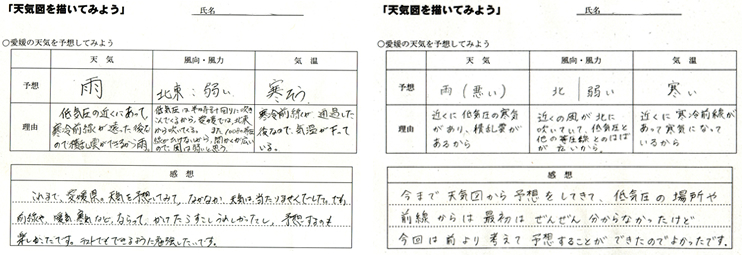 「天気図を描いてみよう」 氏名
○愛媛の天気を予想してみよう
天気 風向・風力 気温
予想 雨 北東:弱い 寒そう
理由
低気圧の近くにあって、
寒冷前線が通った後な
ので積乱雲ができるから雨。
寒冷前線が通過した
後なので、気温が下がって
いる。
感想
これまで、愛媛県の天気を予想してみて、なかなか天気は当たりませんでした。でも
前線や、暖気、寒気など、ならって、
楽しかったです。テストでもできるように勉強したいです。
「天気図を描いてみよう」 氏名
○愛媛の天気を予想してみよう
天気 風向・風力 気温
予想 雨(悪い) 北 | 弱い 寒い
理由
近くに低気圧の寒気
があり、積乱雲が
あるから
近くの風が北に
吹いていて、低気圧と
他の等圧線とのはば
が広いから。
近くに寒冷前線が
あって寒気になって
いるから
感想
今まで天気図から予想をしてきて、低気圧の場所や
前線からは最初はぜんぜん分からなかったけど
今回は前より考えて予想することができたのでよかったです。